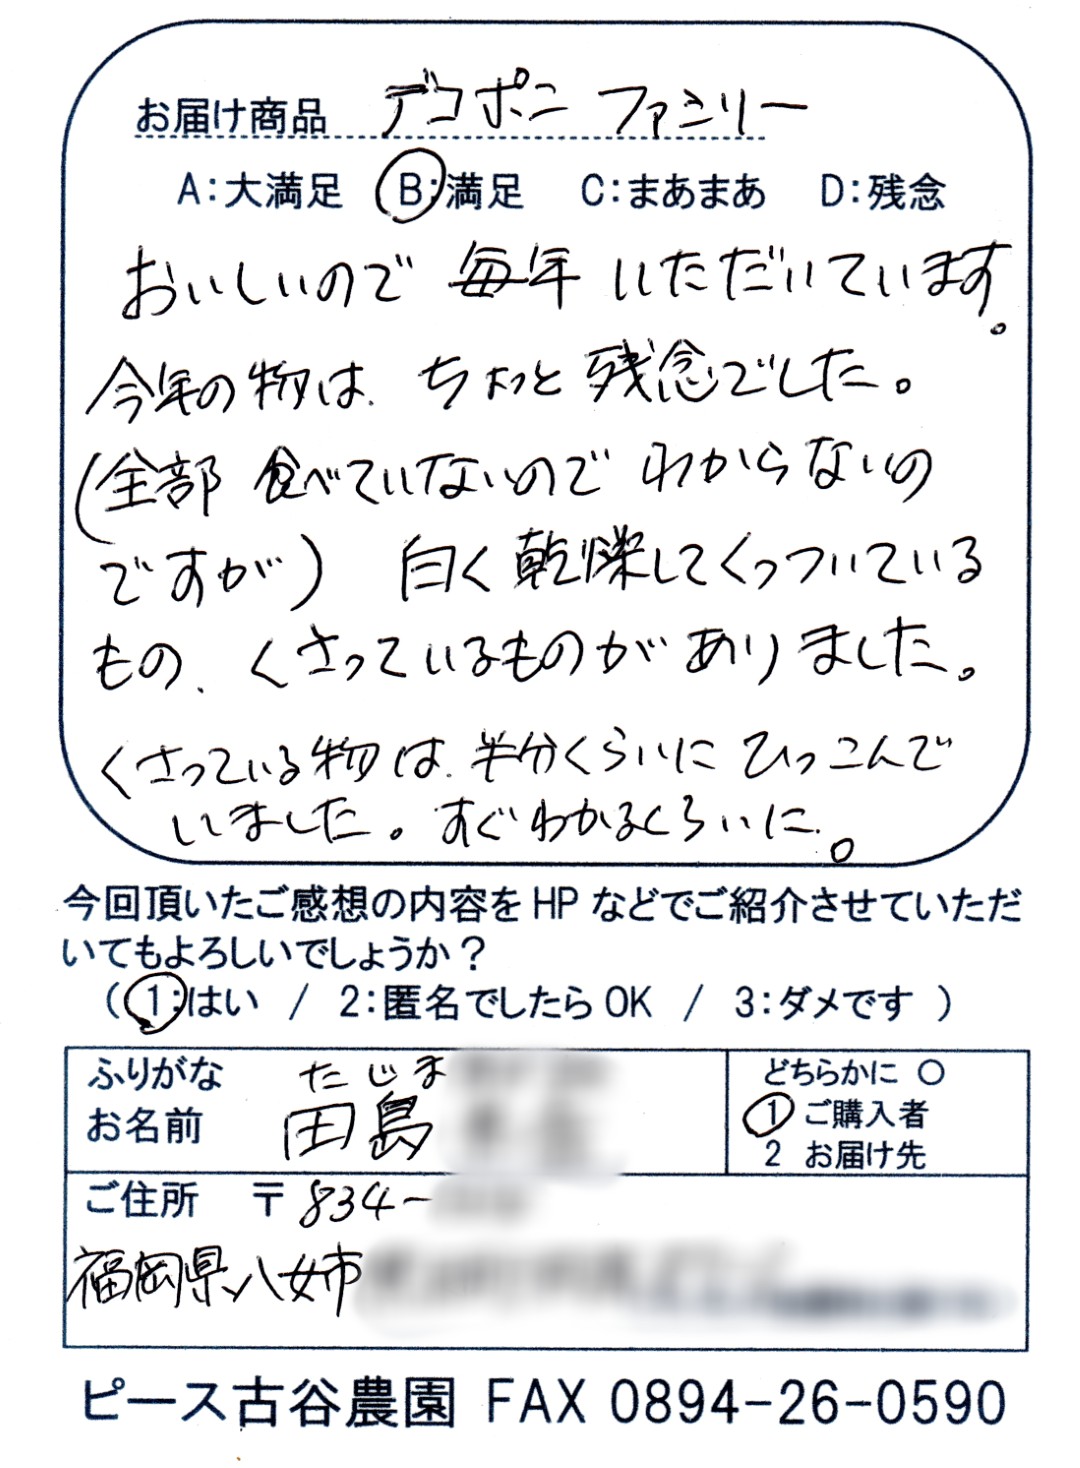 お届け商品 デコポン ファミリー
A:大満足 B:満足 C:まあまあ D:残念
おいしいので 毎年 いただいています。
今年の物は、ちょっと残念でした。
(全部 食べていないので わからないの
ですが) 白く乾燥してくっついている
もの、くさっているものが ありました。
くさっている物は、半分くらいに ひっこんで
いました。すぐわかるくらいに。
今回頂いたご感想の内容をHPなどでご紹介させていただ
いてもよろしいでしょうか?
( 1:はい / 2:匿名でしたらOK / 3:ダメです )
ふりがな たじま
お名前 田島
どちらかに ○
1 ご購入者
2 お届け先
ご住所 〒834-
福岡県八女市
ピース古谷農園 FAX 0894-26-0590